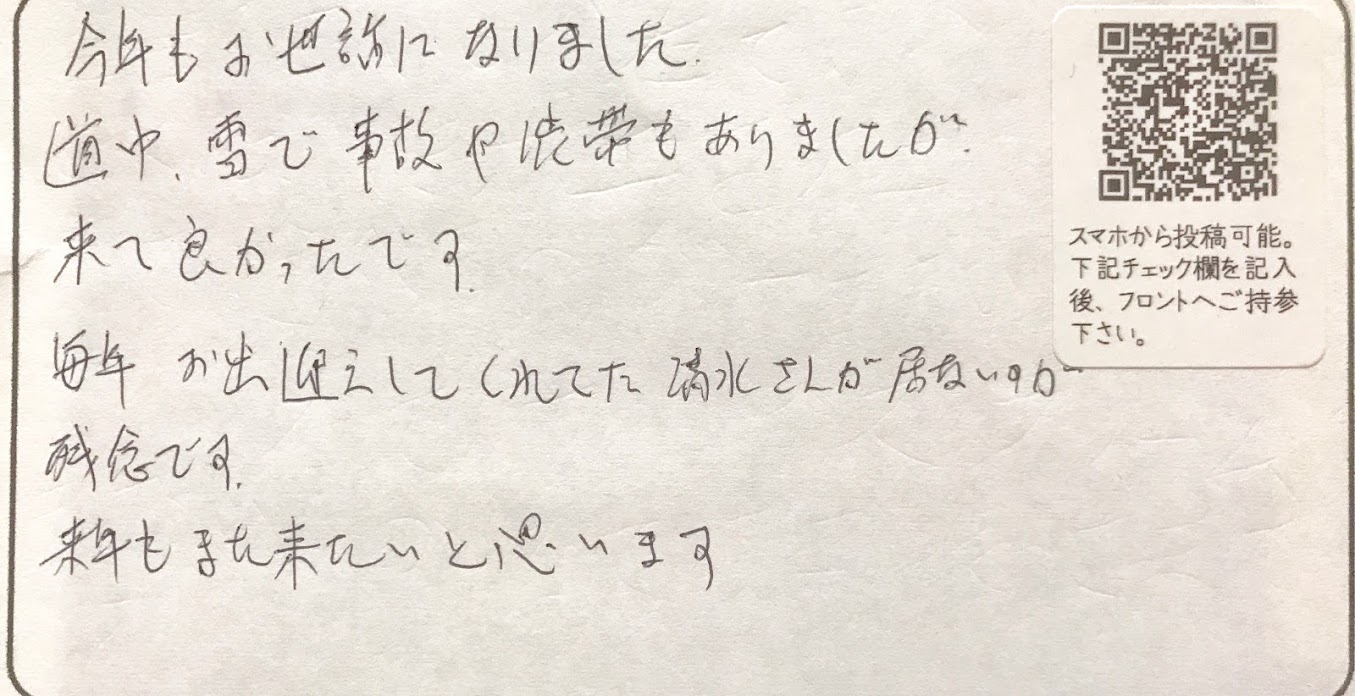 今年もお世話になりました.
道中、雪で事故や渋帯もありましたが、
来て良かったです.
毎年 お出迎えしてくれてた 清水さんが居ないのが
残念です.
来年もまた来たいと思います
スマホから投稿可能。
下記チェック欄を記入
後、フロントへご持参
下さい。